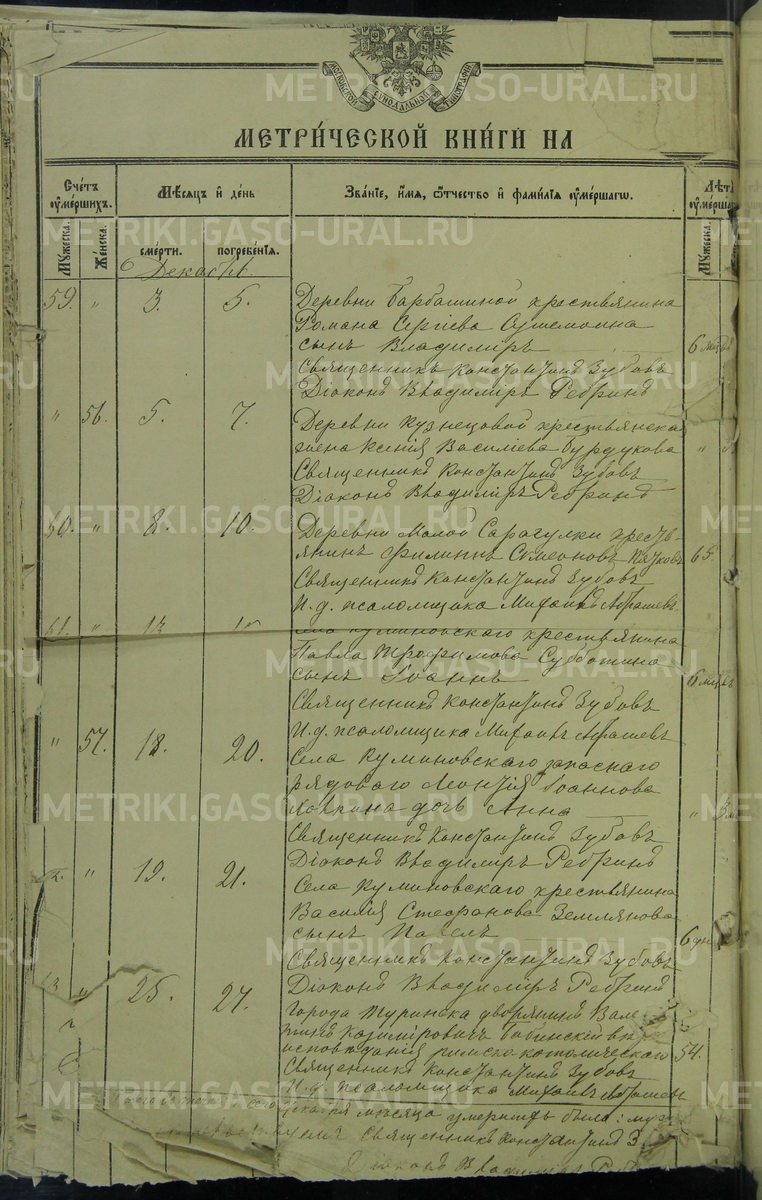 МОСКОВСКОЙ СѴНОДАЛЬНОЙ ТИПОГРАФІИ
METRIKI.GASO-URAL.RU
МЕТРИ́ЧЕСКОЙ КНИ́ГИ НА
Сче́тъ ᲂу҆ме́ршихъ.
Мѣ́сяцъ и҆ де́нь
Зва́нїе, и҆́мя, ѻ҆́тчество и҆ фами́лїя ᲂу҆ме́ршагѡ.
Лѣт
ᲂу҆ме́рша
Мꙋ́жеска.
Же́нска.
сме́рти.
погребе́нїя.
Мꙋ́жеска.
Декабрь
59. " 3. 5. Деревни Барбашиной крестьянина
Романа Сергіева
сынъ Владиміръ 6
Священникъ Константинъ Зубовъ
Діаконъ Владиміръ Ребринъ
" 56. 5. 7. Деревни Кузнецовой крестьянская
жена Ксенія Василіева Бурдукова "
Священникъ Константинъ Зубовъ
Діаконъ Владиміръ Ребринъ
60. " 8. 10. Деревни Малой Сарагулки кресть-
янинъ Филиппъ Симеоновъ Пятковъ 65.
Священникъ Константинъ Зубовъ
И. д. псаломщика Михаилъ
61. " 13
села Куминовскаго крестьянина
Павла Трофимова Субботина
сынъ Іоаннъ
Священникъ Константинъ Зубовъ
И. д. псаломщика Михаилъ
" 57. 18. 20. Села Куминовскаго запаснаго
рядоваго Леонтія Іоаннова
дочь Анна " 3
Священникъ Константинъ Зубовъ
Діаконъ Владиміръ Ребринъ
2. " 19. 21. Села Куминовскаго крестьянина
Василія Стефанова Землянова
сынъ Павелъ 6 дн
Священникъ Константинъ Зубовъ
Діаконъ Владиміръ Ребринъ
" 25. 27. Города Туринска дворянинъ Вале-
Казиміровичъ
исповѣданія римско-католическаго 54.
Священникъ Константинъ Зубовъ
И. д. псаломщика Михаилъ
мѣсяца умершихъ было: муж
Священникъ Константинъ З
Діаконъ Владиміръ Реб